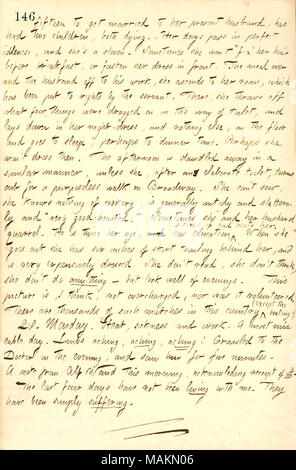 146
fifteen to get married to her present husband, has
had two children, both dying. Her days pass in perfect
idleness, and she's a sloven. Sometimes she won't "fix" her hair
before breakfast, or fasten her dress in front. The meal over
and the husband off to his work, she ascends to her room, which
has been put to rights by the servant. There, she throws off
what few things were dragged on in the way of toilet, and
lays down in her night-dress, and nothing else, on the floor
and goes to sleep, perhaps to dinner time. Perhaps she
won't dress then. The afternoon is dawdled away in a
similar manner, unless she, after an elaborate toilet, turns
out for a purposeless walk in Broadway. She can't sew,
she knows nothing of cookery, is generally untidy and slatternly
and very good-natured. Sometimes she and her husband
quarrel. He is twice her age, and
goes out she has six inches of starch trailing behind her, and
is very expensively dressed. She don't read, she don't think,
she don't do anything — but look well of evenings. This
picture is, I think, not overcharged, nor was it volunteered
There are thousands of such matches in this country
28. Monday. Heat, sickness and work. A most miserable
day. Limbs aching, aching, aching! Crawled to the
Doctor in the evening, and saw him for five minutes.
A note from Alf Waud this morning, acknowledging receipt of
The last four days have not been living with me. They
have been simply suffering.
alamy
Image ID: MAKN06
www.alamy.com